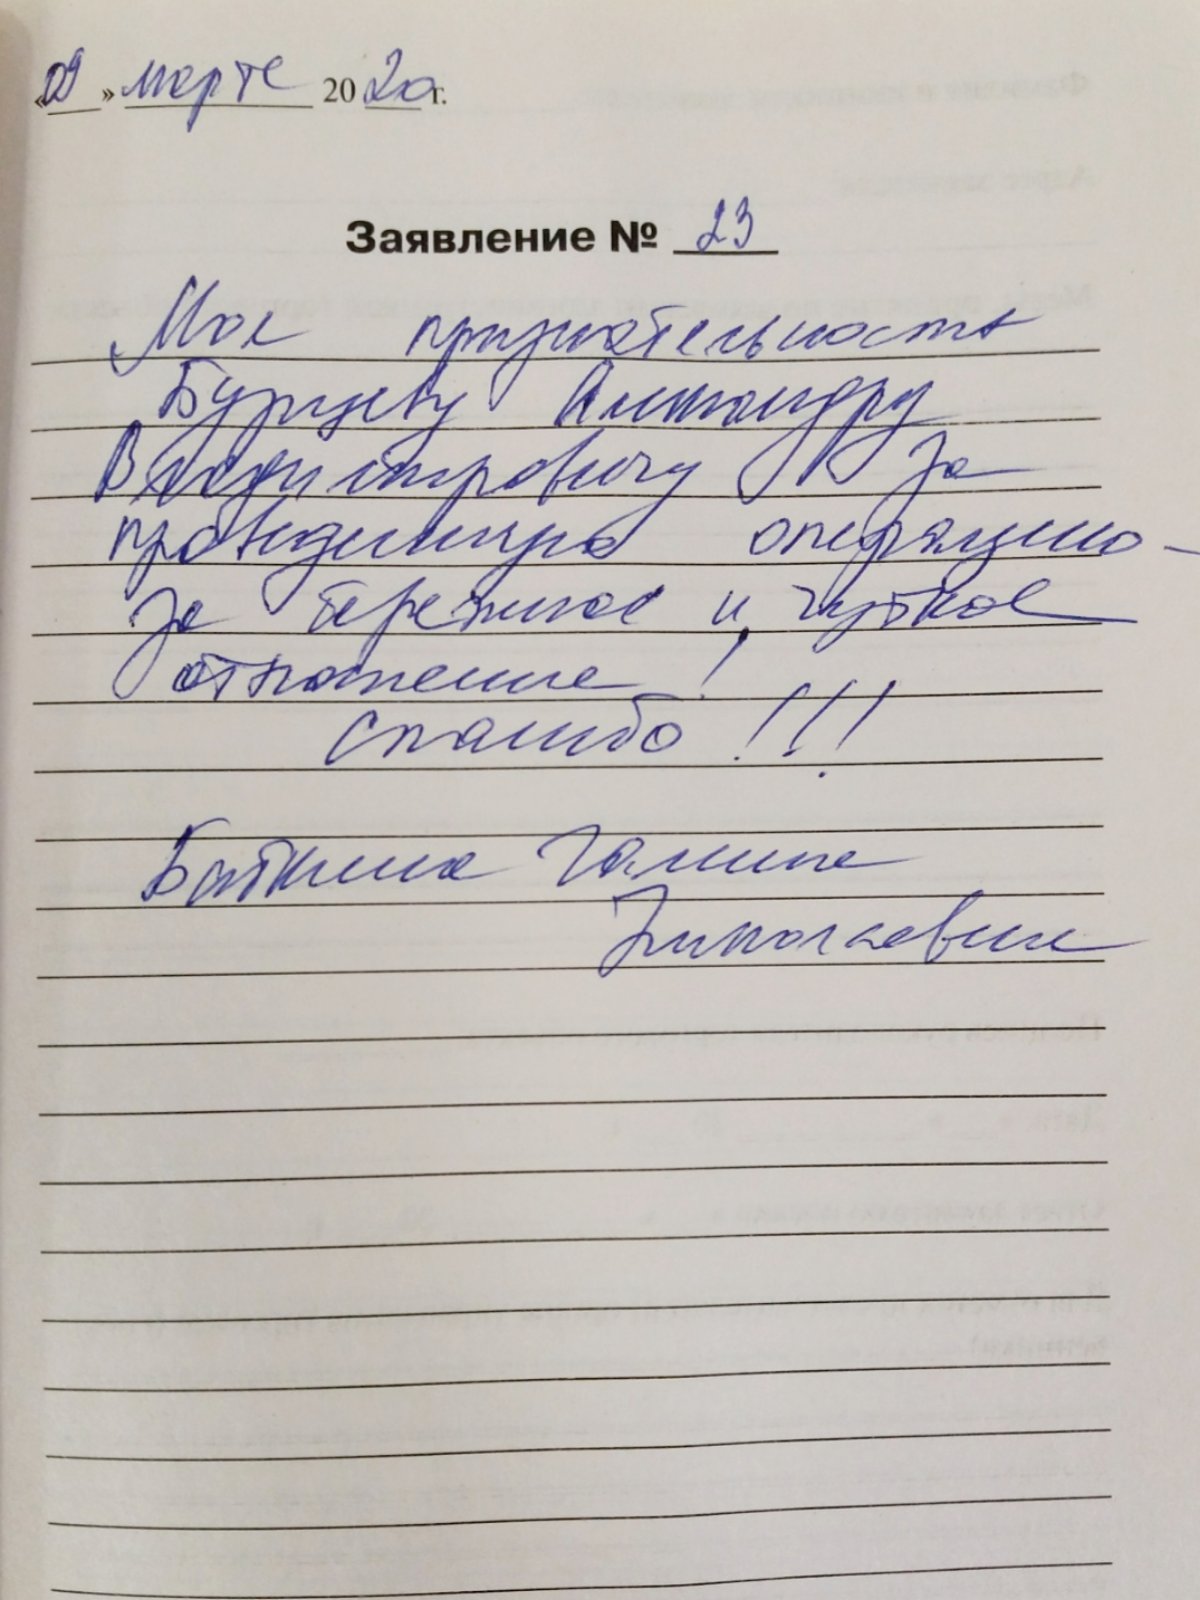 «09» марта 2020г.
Заявление № 23
Моя признательность
Бурцеву Александру
Владимировичу за
проведенную операцию -
за бережное и чуткое
отношение!
спасибо!!!
Галина
Николаевна